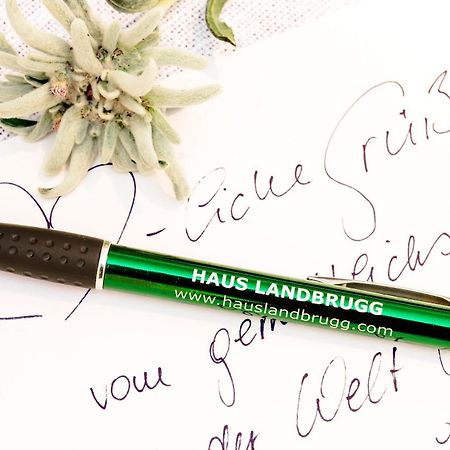 -liche Grüß
HAUS LANDBRUGG
www.hauslandbrugg.com
vom gem
der Welt